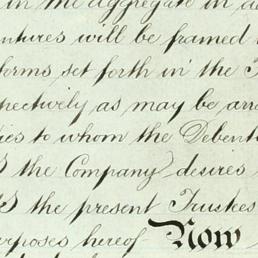 in the aggregate in a
entures will be framed
forms set forth in the
pectively as may be arr
ties to whom the Debent
S the Company desires
S the present Trustees
urposes hereof Now